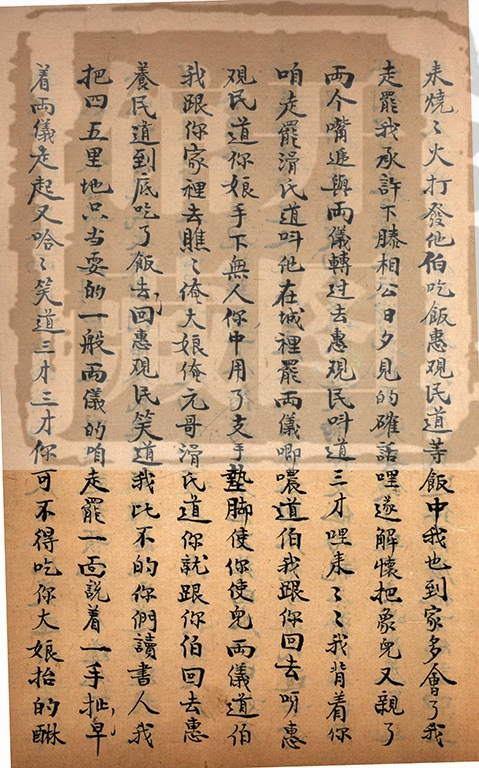 来燒〻火打發他伯吃飯惠观民道等飯中我也到家多會了我
走罷我承許下滕相公日夕見的確話哩遂解懷把象兒又親了
兩个嘴遞與兩儀轉过去惠观民呌道三才哩来〻我背着你
咱走罷滑氏道呌他在城裡罷兩儀唧噥道伯我跟你回去呀惠
观民道你娘手下無人你中用了支手墊脚使你使兒兩儀道伯
我跟你家裡去瞧〻俺大娘俺元哥滑氏道你就跟你伯回去惠
養民道到底吃了飯去回惠观民笑道我比不的你們讀書人我
把四五里地只当耍的一般兩儀的咱走罷一面説着一手扯卓
着兩儀走起又哈〻笑道三才三才你可不得吃你大娘抬的酥